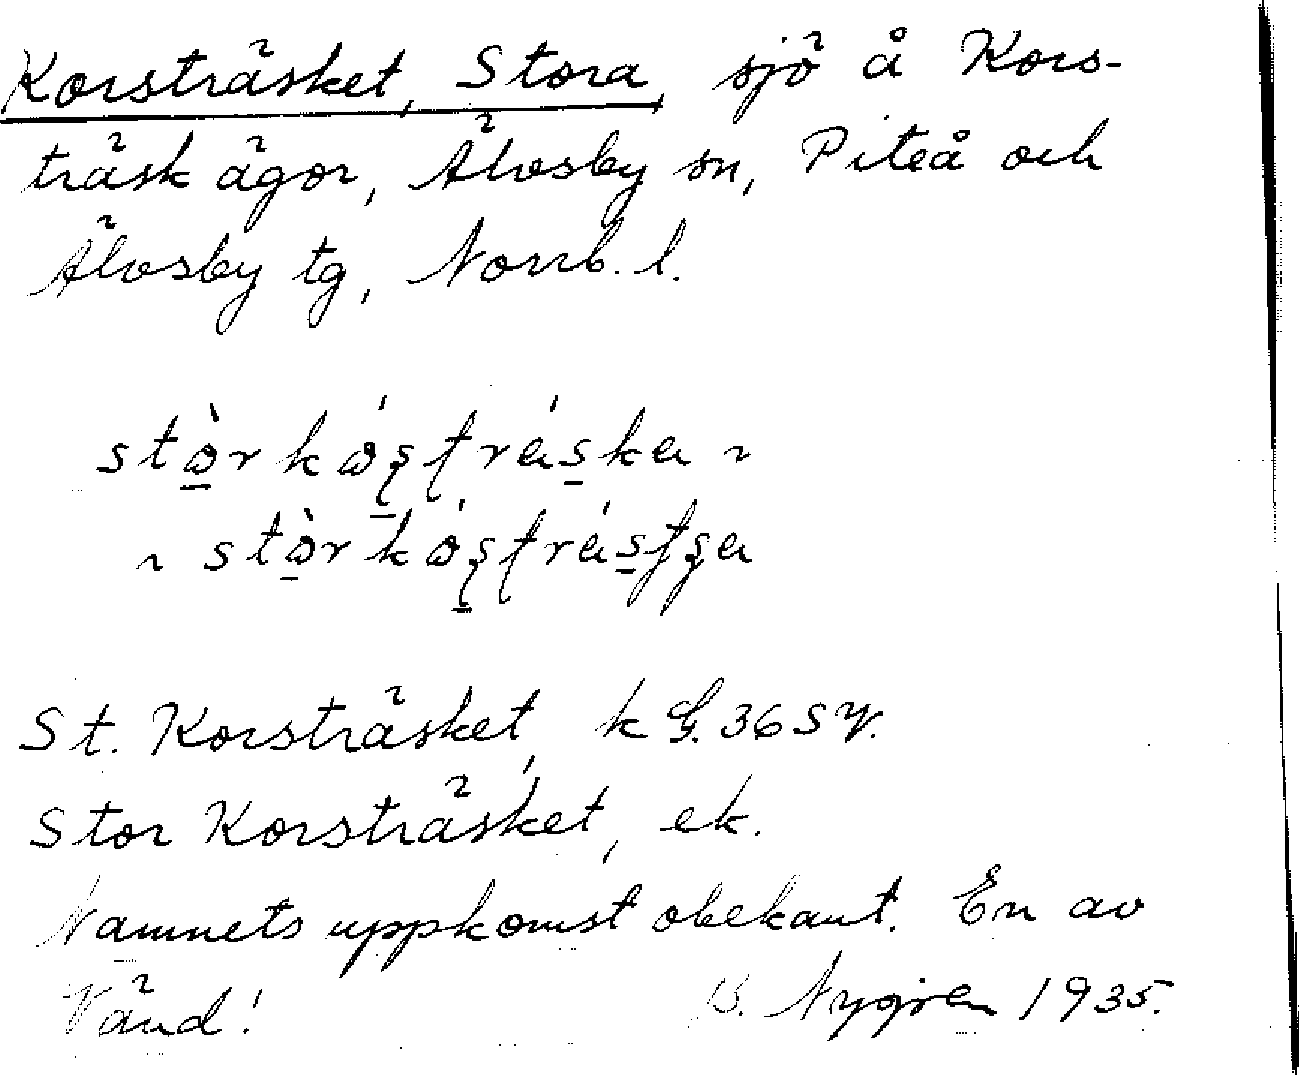 Korsträsket, Stora, sjö å Kors-
träsk ägor, Älvsby sn, Piteå och
Älvsby tg, Norrb. l.
St. Korsträsket, k G. 36 SV.
Stor Korsträsket, ek.
Namnets uppkomst obekant. En av
Vänd! B. Nygren 1935.